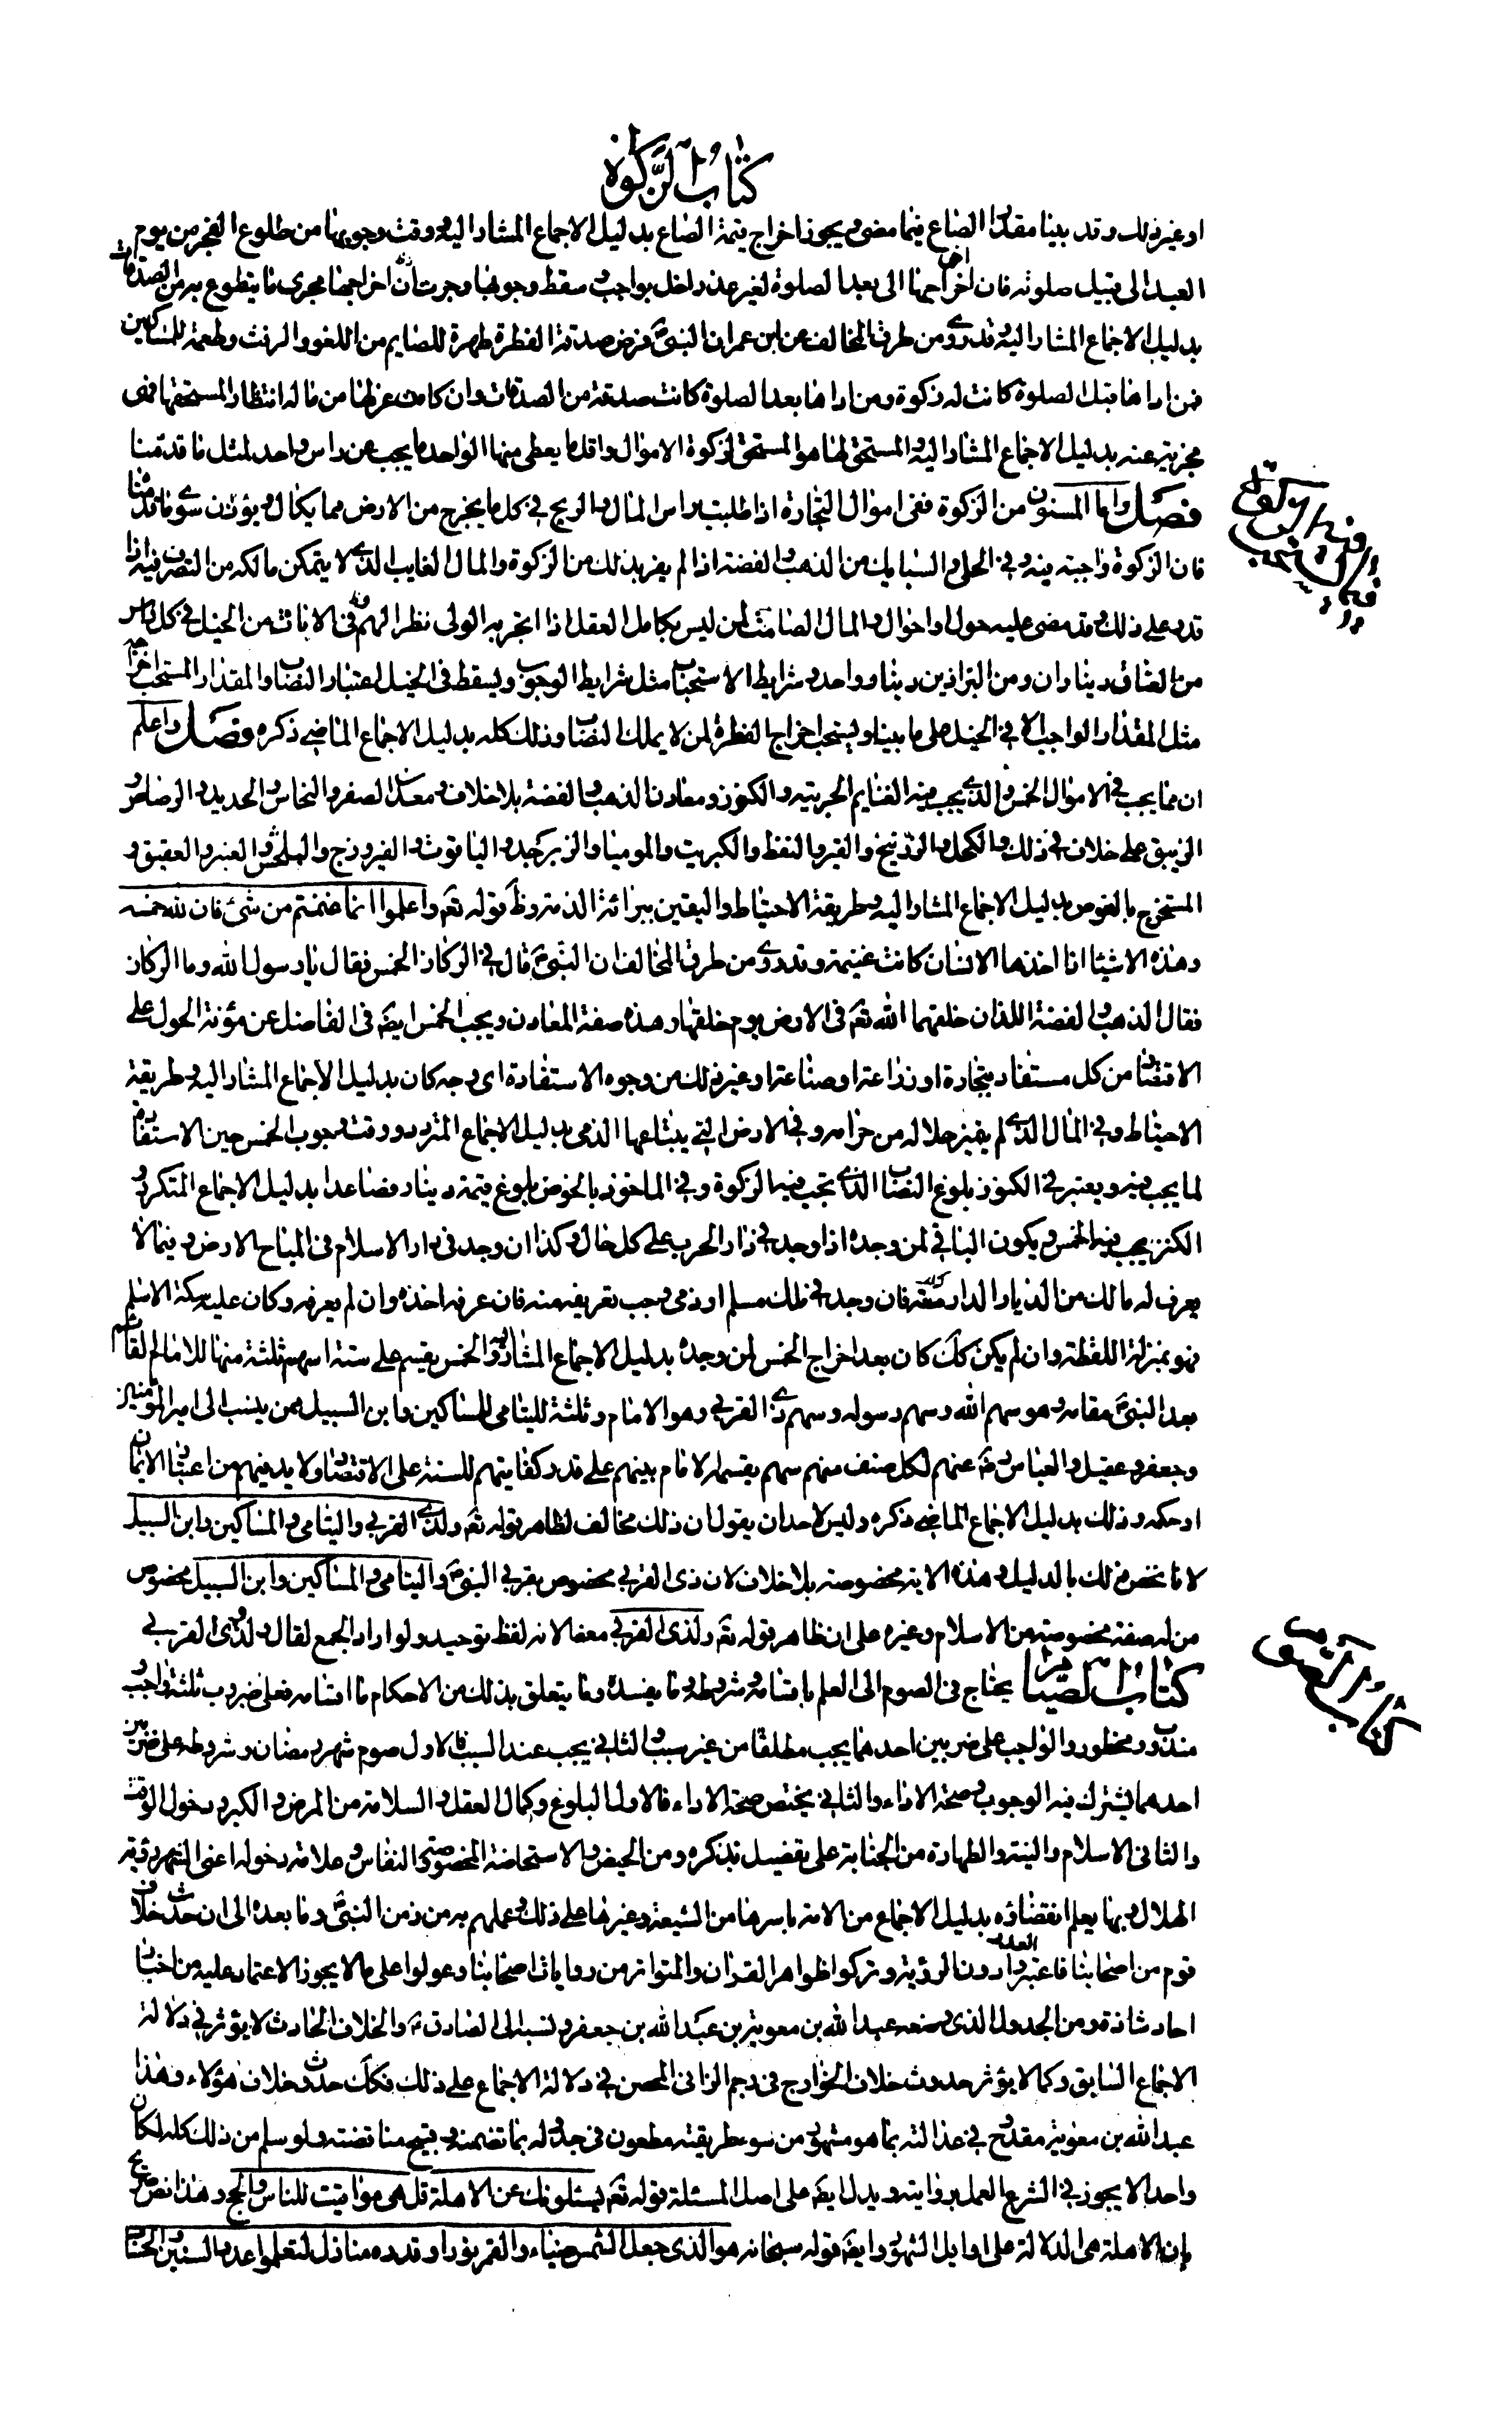 كتاب الزكوة
او غير ذلك وقد بينا مقدار الصاع فيما مضى ويجوز اخراج قيمة الصاع بدليل الاجماع المشار اليه ووقت وجوبها من طلوع الفجر من يوم
العيد الى قبيل صلوته فان اخر اخراجها الى بعد الصلوة لغير عذر اخل بواجب وسقط وجوبها وجرت ان اخراجها مجرى ما يتطوع به من الصدقات
بدليل الاجماع المشار اليه وقد روى من طرق المخالف عن ابن عمر ان النبي ص فرض صدقة الفطرة طهرة للصايم من اللغو والرفث وطعمة للمساكين
فمن اداها قبل الصلوة كانت له زكوة ومن اداها بعد الصلوة كانت صدقة من الصدقات وان كان عزلها من ماله انتظار المستحقها فهى
مجزية عنه بدليل الاجماع المشار اليه والمستحق لها هو المستحق لزكوة الاموال واقل ما يعطى منها الواحد ما يجب عن راس واحد لمثل ما قدمنا
فصل واما المسنون من الزكوة ففى اموال التجارة اذا طلبت براس المال او الربح في كل ما يخرج من الارض مما يكال او يوزن سوى ما قدمنا
فان الزكوة واجبة فيه وفي الحلى والسبايك من الذهب والفضة اذا لم يفر بذلك من الزكوة والمال الغايب الذي لا يتمكن مالكه من التصرف فيه اذا
قدر على ذلك وقد مضى عليه حول او احوال والمال الصامت لمن ليس بكامل العقل اذا اتجر به الولى نظرا لهم وفى الاناث من الخيل في كل راس
من العتاق ديناران ومن البراذين دينار واحد وشرايط الاستحباب مثل شرايط الوجوب ويسقط فى الخيل اعتبار النصاب والمقدار المستحب اخراجه
مثل المقدار الواجب الا في الخيل على ما بينا ويستحب اخراج الفطرة لمن لا يملك النصاب وذلك كله بدليل الاجماع الماضي ذكره فصل واعلم
ان مما يجب في الاموال الخمس والذي يجب فيه الغنايم الحربية والكنوز ومعادن الذهب والفضة بلا خلاف ومعدن الصفر والنحاس والحديد والرصاص و
الزيبق على خلاف في ذلك والكحل والزرنيخ والقير والنفط والكبريت والموميا والزبرجد والياقوت والفيروزج والبلخش والعنبر والعقيق و
المستخرج بالغوص بدليل الاجماع المشار اليه وطريقة الاحتياط واليقين ببرائة الذمة وظ قوله تع واعلموا انما غنمتم من شئ فان لله خمسه
وهذه الاشيا اذا اخذها الانسان كانت غنيمة وقد روى من طرق المخالف ان النبي ص قال في الركاز الخمس فقال يا رسول الله وما الركاز
فقال الذهب والفضة اللذان خلقهما الله تع فى الارض يوم خلقها وهذه صفة المعادن ويجب الخمس ايضا فى الفاضل عن مؤنة الحول على
الاقتصاد من كل مستفاد بتجارة او زراعة او صناعة او غير ذلك من وجوه الاستفادة اي وجه كان بدليل الاجماع المشار اليه وطريقة
الاحتياط وفي المال الذي لم يتميز حلاله من حرامه وفي الارض التي يبتاعها الذمى بدليل الاجماع المتردد ووقت وجوب الخمس حين الاستفادة
لما يجب فيه ويعتبر في الكنوز بلوغ النصاب الذي تجب فيه الزكوة وفي الماخوذ بالغوص بلوغ قيمة دينار فصاعدا بدليل الاجماع المتكرر و
الكنز يجب فيه الخمس ويكون الباقي لمن وجده اذا وجد في دار الحرب على كل حال وكذا ان وجد فى دار الاسلام فى المباح الارض وفيما لا
يعرف له مالك من الديار الدارسة فان وجد في ملك مسلم او ذمى وجب تعريفه منه فان عرفه اخذه وان لم يعرفه وكان عليه سكة الاسلام
فهو بمنزلة اللقطة وان لم يكن كك كان بعد اخراج الخمس لمن وجده بدليل الاجماع المشار اليه والخمس يقسم على ستة اسهم ثلثة منها للامام القائم
بعد النبي ص مقامه وهو سهم الله وسهم رسوله وسهم ذي القربي وهو الامام وثلثة لليتامى والمساكين وابن السبيل ممن ينسب الى امير المؤمنين
وجعفر وعقيل والعباس رض عنهم لكل صنف منهم سهم يقسمه الامام بينهم على قدر كفايتهم للسنة على الاقتصاد ولا بد فيهم من اعتبار الايمان
او حكمه وذلك بدليل الاجماع الماضي ذكره وليس لاحد ان يقول ان ذلك مخالف لظاهر قوله تع ولذي القربي واليتامى والمساكين وابن السبيل
لانا نخص ذلك بالدليل وهذه الاية مخصوصة بلا خلاف لان ذى القربي مخصوص بقربي النبي ص واليتامى والمساكين وابن السبيل مخصوص
من له صفة مخصوصة من الاسلام وغيره على ان ظاهر قوله تع ولذى القربي معنا لانه لفظ توحيد ولو اراد الجمع لقال ولذوى القربي
كتاب الصيام يحتاج فى الصوم الى العلم باقسامه وشروطه وما يفسده وما يتعلق بذلك من الاحكام فاما اقسامه فعلى ضروب ثلثة واجب و
مندوب ومحظور والواجب على ضربين احدهما يجب مطلقا من غير سبب والثاني يجب عند السبب فالاول صوم شهر رمضان وشروطه على ضربين
احدهما يشترك فيه الوجوب وصحة الاداء والثاني يختص صحة الاداء فالاول البلوغ وكمال العقل والسلامة من المرض والكبر ودخول الوقت
والثانى الاسلام والنية والطهارة من الجنابة على تفصيل نذكره ومن الحيض والاستحاضة المخصوصة والنفاس وعلامة دخوله اعنى الشهر رؤية
الهلال وبها يعلم انقضاؤه بدليل الاجماع من الامة باسرها من الشيعة وغيرها على ذلك وعملهم به من زمن النبي ص وما بعده الى ان حدث خلاف
قوم من اصحابنا فاعتبروا العدد دون الرؤية وتركوا ظواهر القران والمتواتر من روايات اصحابنا وعولوا على ما لا يجوز الاعتماد عليه من اخبار
احاد شاذة ومن الجدول الذى وضعه عبد الله بن معوية بن عبد الله بن جعفر ونسبه الى الصادق ع والخلاف الحادث لا يؤثر في دلالة
الاجماع السابق وكما لا يؤثر حدوث خلاف الخوارج فى رجم الزانى المحصن في دلالة الاجماع على ذلك فكك حدوث خلاف هؤلاء وهذا
عبد الله بن معوية مقدوح في عدالته بما هو مشهور من سوء طريقته مطعون فى جدوله بما تضمنه من قبيح مناقضته ولو سلم من ذلك كله لكان
واحدا لا يجوز في الشرع العمل بروايته ويدل ايضا على اصل المسئلة قوله تع يسئلونك عن الاهلة قل هى مواقيت للناس والحج وهذا نص صريح
بان الاهلة هى الدلالة على اوايل الشهور وايضا قوله سبحانه هو الذى جعل الشمس ضياء والقمر نورا وقدره منازل لتعلموا عدد السنين والحساب
كتاب الصوم